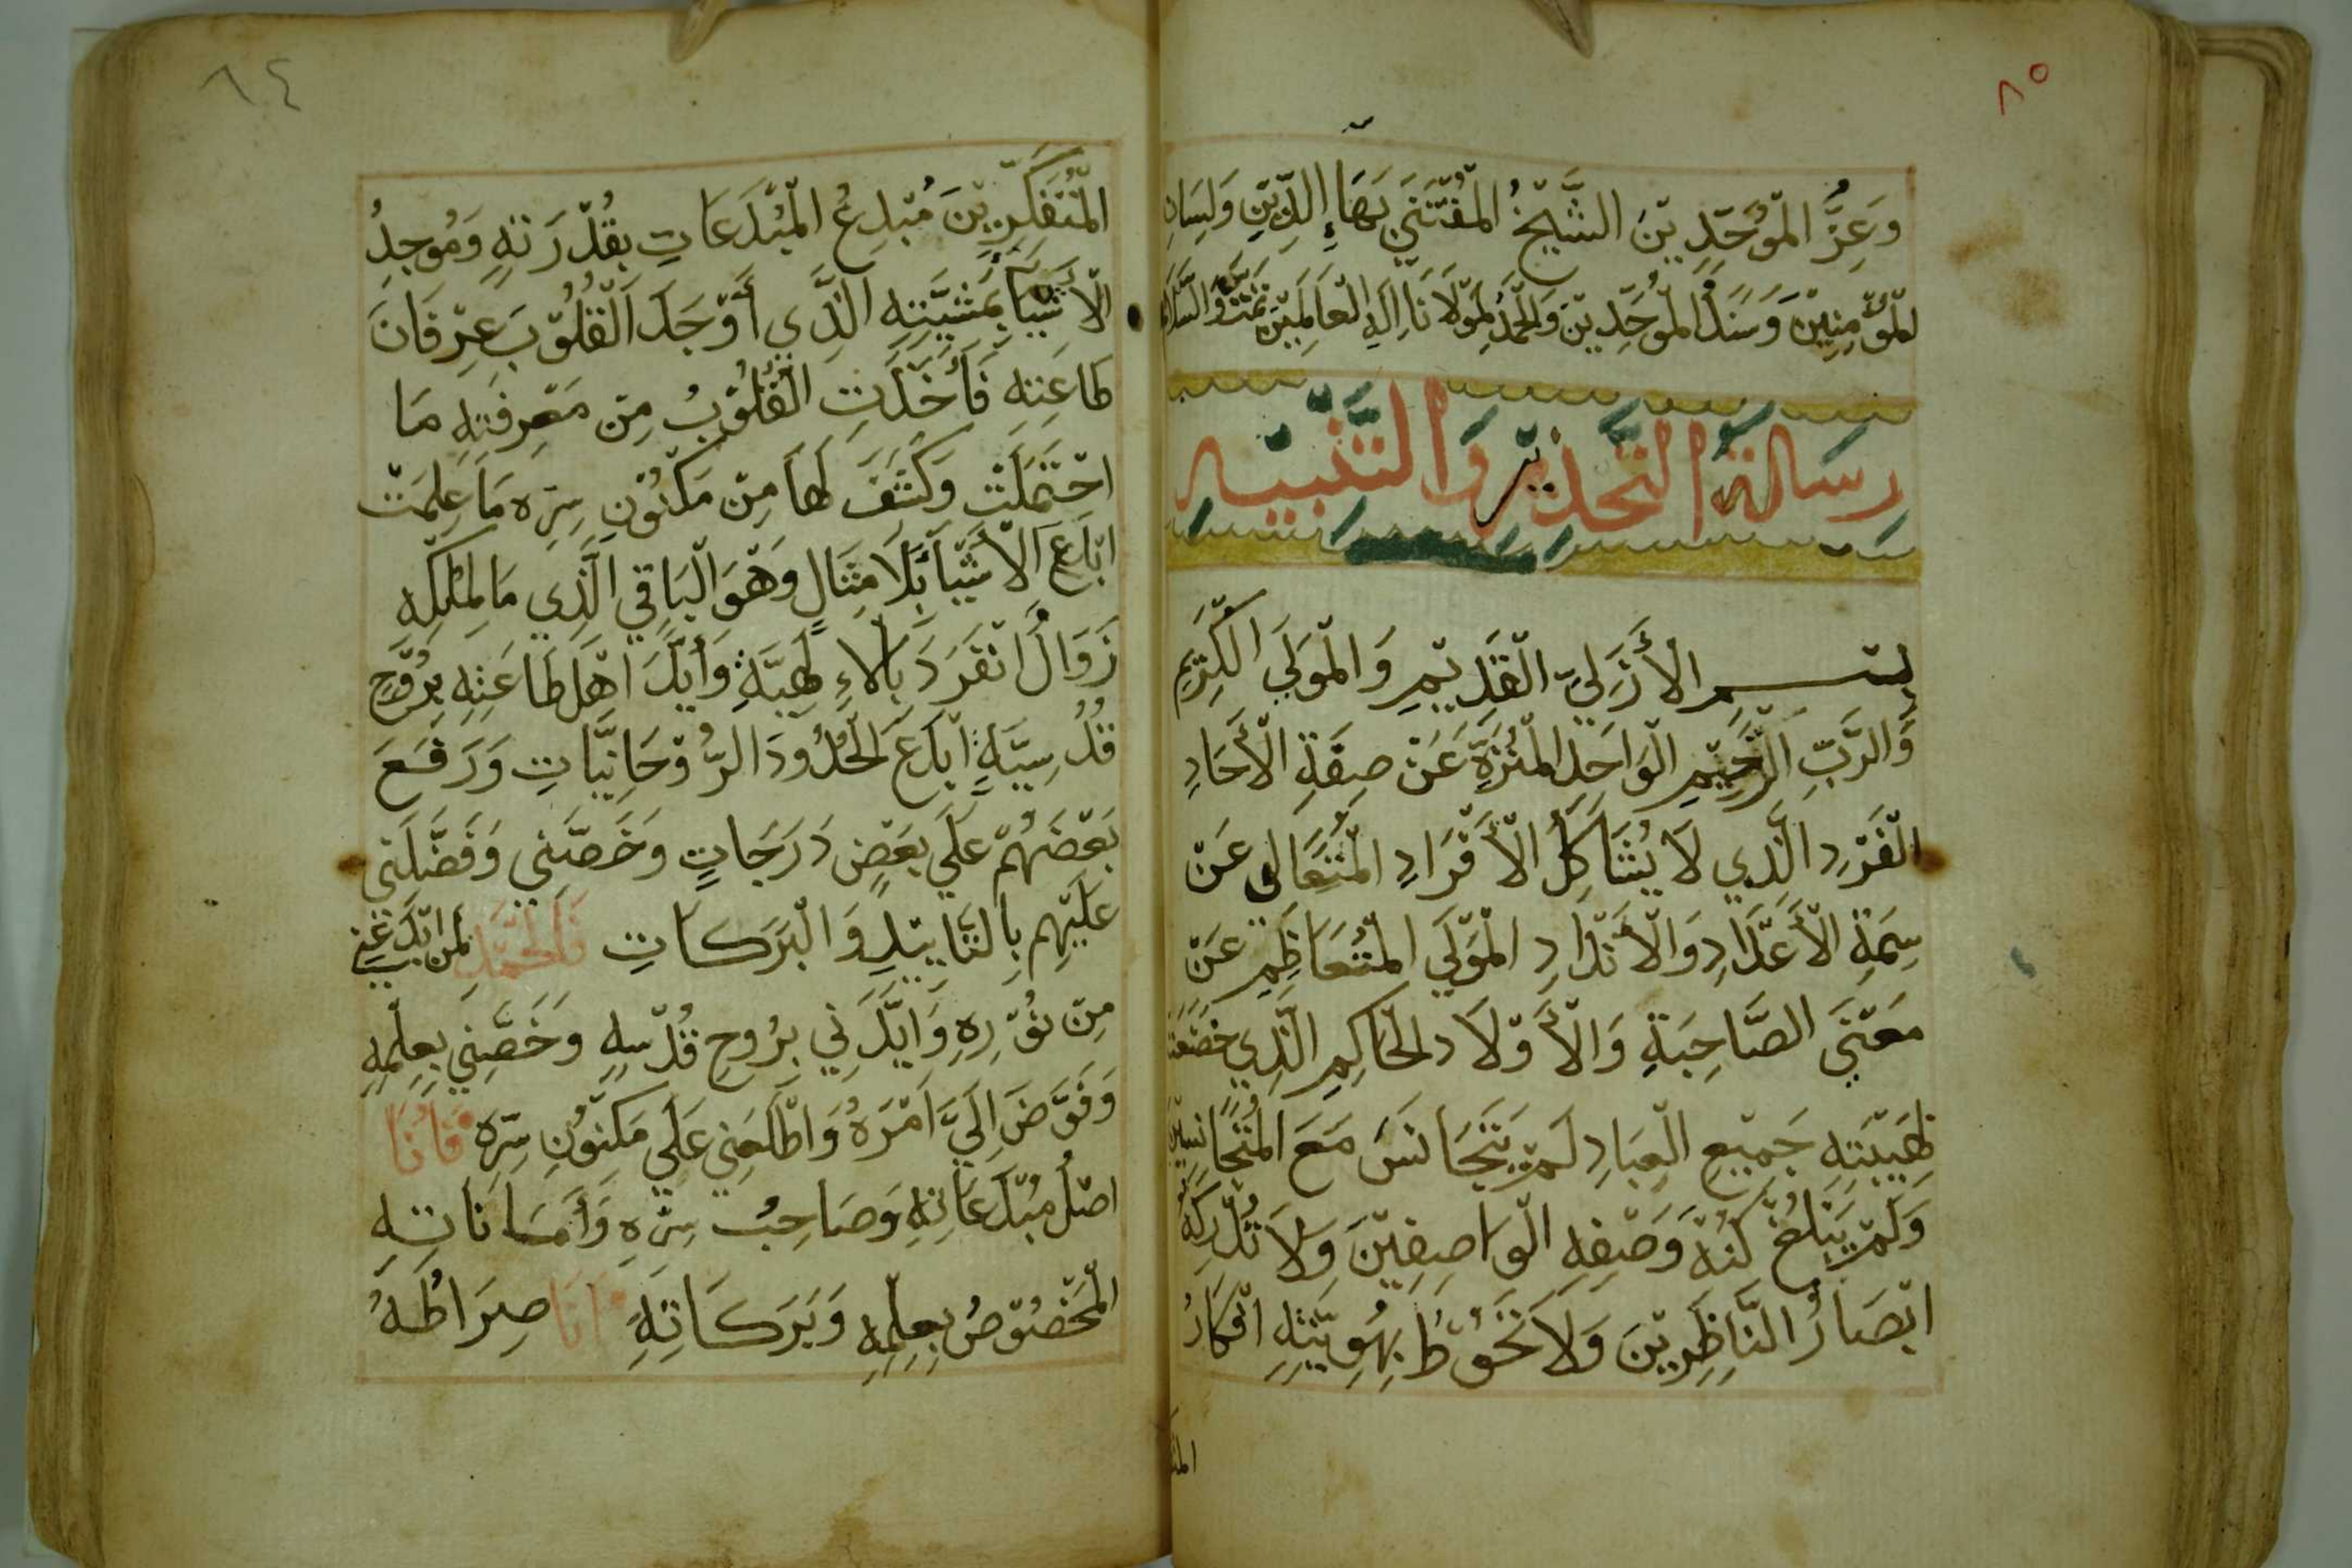 ٨٥
وَعِزُّ الْمُوَحِّدِيْنَ الشَّيْخُ الْمُقْتَنَي بَهَاءِ الدِّيْنِ وَلِسَانِ
الْمُؤْمِنِيْنَ وَسَنَدُ الْمُوَحِّدِيْنَ وَالْحَمْدُ لِمَوْلَانَا اِلَهِ الْعَالَمِيْنَ تَمَّتْ وَالسَّلَام
رِسَالَةُ التَّحْذِيْرِ وَالتَّنْبِيْهِ
بِسْمِ الْأَزَلِيِّ الْقَدِيْمِ وَالْمَوْلَي الْكَرِيْمِ
وَالرَّبِّ الرَّحِيْمِ الْوَاحِدِ الْمُنَزَّهِ عَنْ صِفَةِ الْأَحَادِ
الْفَرْدِ الَّذِي لَا يُشَاكِلُ الْأَفْرَادِ الْمُتَعَالِي عَنْ
سِمَةِ الْأَعْدَادِ وَالْأَنْدَادِ الْمَوْلَي الْمُتَعَاظِمِ عَنْ
مَعْنَي الصَّاحِبَةِ وَالْأَوْلَادِ الْحَاكِمِ الَّذِي خَضَعَتْ
لِهَيْبَتِهِ جَمِيْعِ الْعِبَادِ لَمْ يَتَجَانَسَ مَعَ الْمُتَجَانِسِيْنَ
وَلَمْ يَبْلُغْ كُنْهَ وَصْفِهِ الْوَاصِفِيْنَ وَلَا تُدْرِكُهُ
ابْصَارُ النَّاظِرِيْنَ وَلَا تَحُوْطُ بِهُوِيَّتِهِ افْكَارُ
المت
٨٤
الْمُتَفَكِّرِيْنَ مُبْدِعُ الْمُبْدَعَاتِ بِقُدْرَتِهِ وَمُوجِدُ
الْأَشْيَا بِمَشِيَّتِهِ الَّذِي أَوْجَدَ الْقُلُوْبَ عِرْفَانَ
طَاعَتِهِ فَأَخَذَتِ الْقُلُوْبُ مِنْ مَعْرِفَتِهِ مَا
احْتَمَلَتْ وَكَشَفَ لَهَا مِنْ مَكْنُوْنِ سِرِّهِ مَا عَلِمَتْ
ابْدَعَ الْأَشْيَاَ بِلَا مِثَالٍ وَهُوَ الْبَاقِي الَّذِي مَا لِمُلْكِهِ
زَوَالُ انْفَرَدَ بِالْاءِ لَهِيَّةِ وَأَيَّدَ اهْلَ طَاعَتِهِ بِرُوْحٍ
قُدُسِيَّةٍ ابْدَعَ الْحُدُودَ الرُّوْحَانِيَّاتِ وَرَفَعَ
بَعْضَهُمْ عَلَي بَعْضٍ دَرَجَاتٍ وَخَصَّنِي وَفَضَّلَنِي
عَلَيْهِم بِالتَّايِيْدِ وَالْبَرَكَاتِ فَالْحَمْدُ لِمَنْ ابْدَعَنِي
مِنْ نُوْرِهِ وَايَّدَنِي بِرُوحِ قُدْسِهِ وَخَصَّنِي بِعِلْمِهِ
وَفَوَّضَ اِلَيَّ اَمْرَهُ وَاطْلَعَنِي عَلَي مَكْنُوْنِ سِرِّهِ فَأَنَا
اصْلُ مُبْدَعَاتِهِ وَصَاحِبُ سِرِّهِ وَأَمَانَاتِهِ
الْمَخْصُوْصُ بِعِلْمِهِ وَبَرَكَاتِهِ أَنَا صِرَاطُهُ